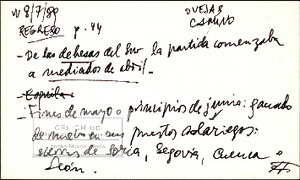 8/7/80
OVEJAS
CAMINO
REGRESO p. 44
- De las dehesas del Sur la partida comenzaba
a mediados de abril.
- Fines de mayo o principios de junio: ganado
de nuevo en sus puestos solariegos:
sierras de Soria, Segovia, Cuenca o
León.